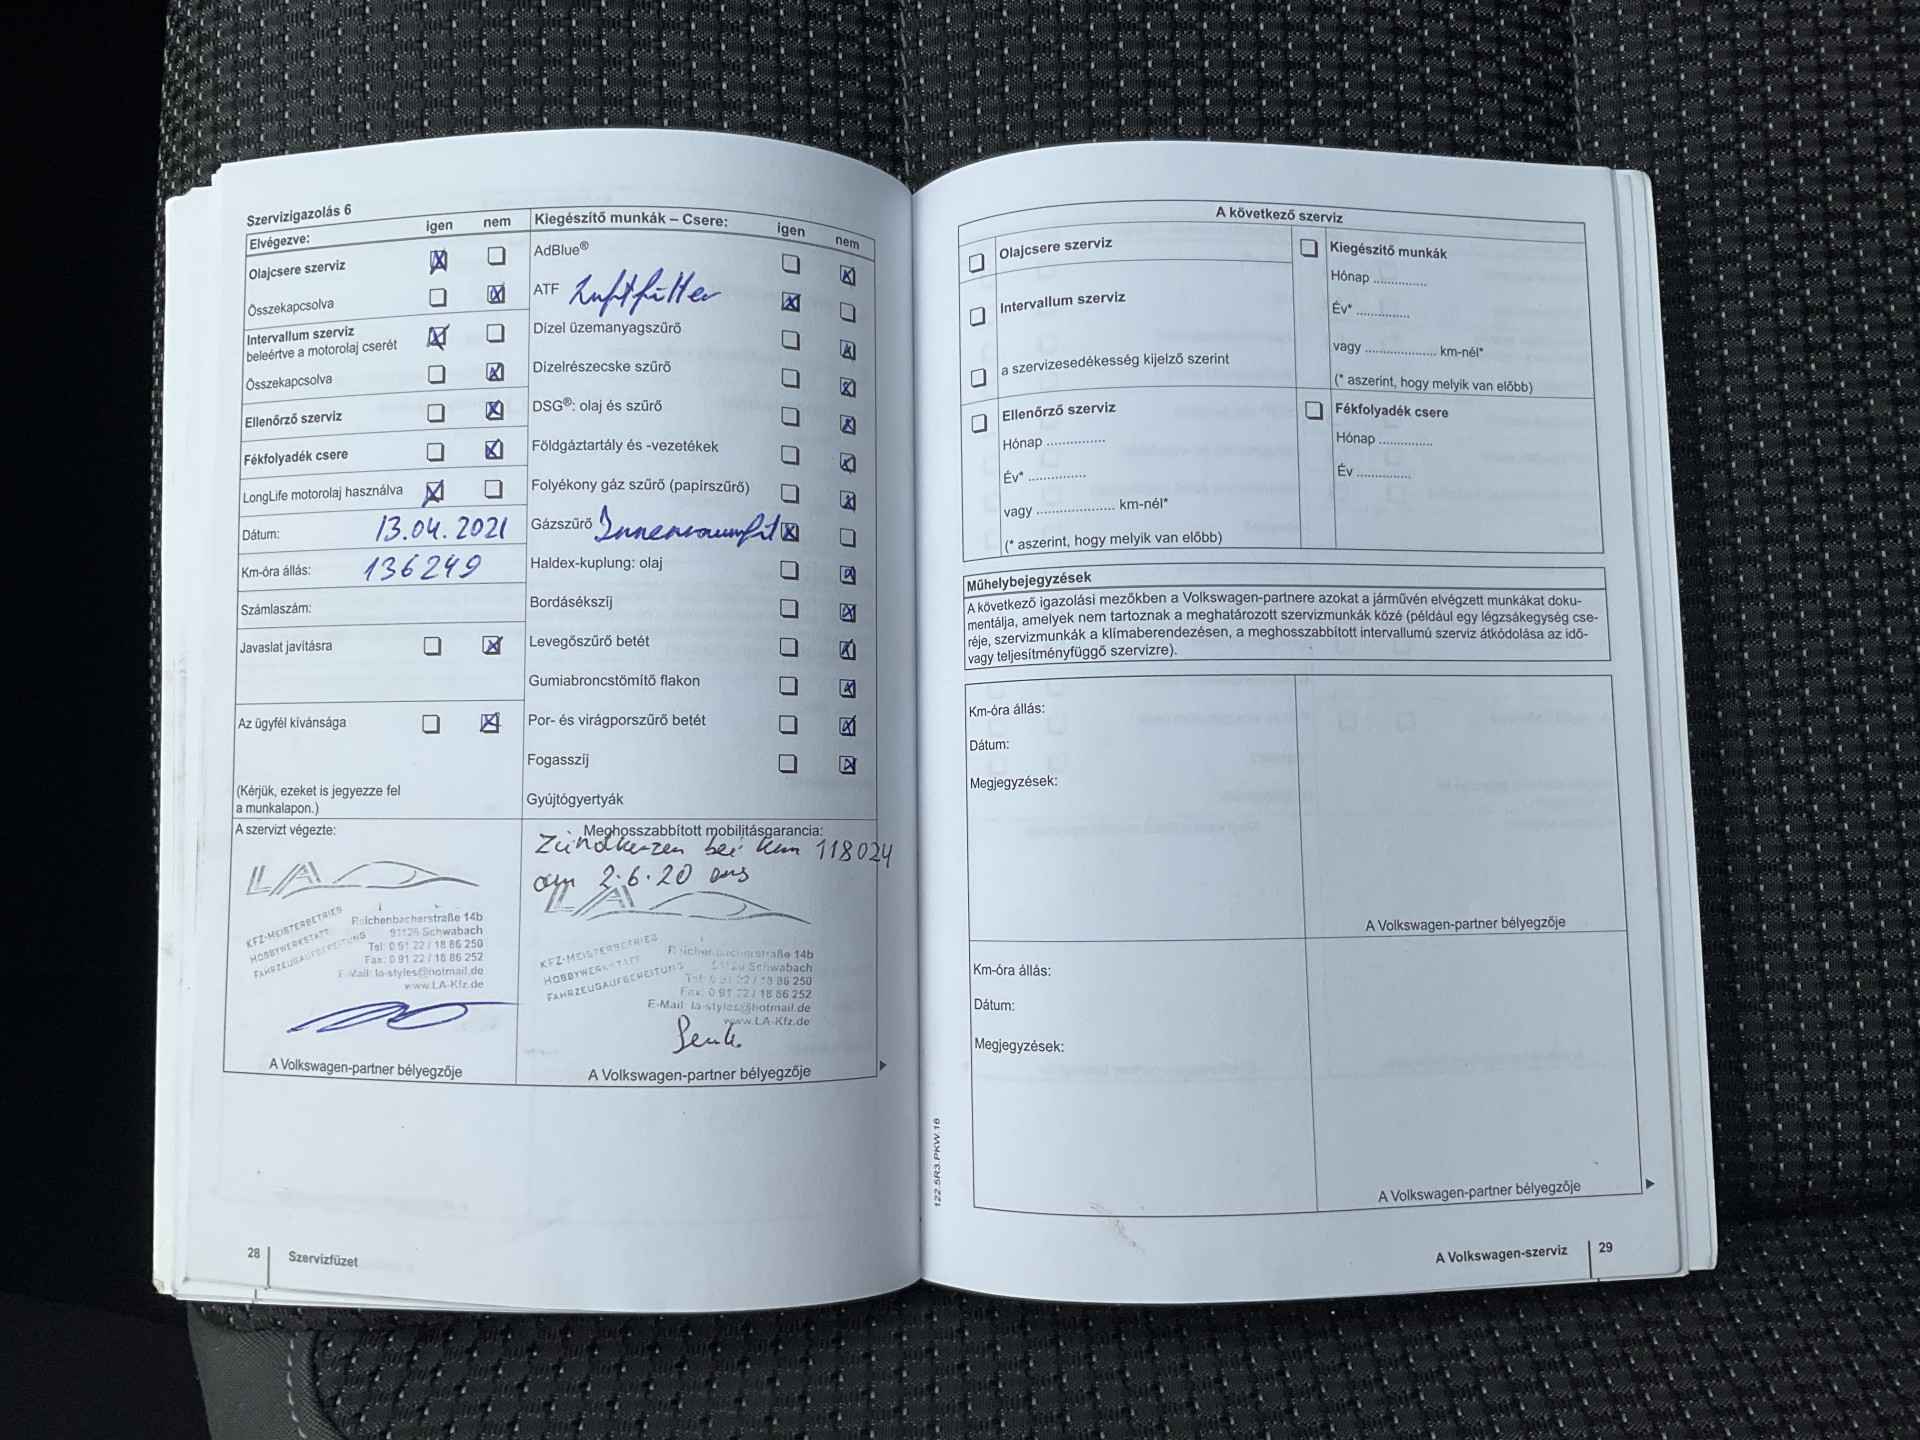 Szervizigazolás 6
Elvégezve: igen nem
Olajcsere szerviz
Összekapcsolva
Intervallum szerviz
beleértve a motorolaj cserét
Összekapcsolva
Ellenőrző szerviz
Fékfolyadék csere
LongLife motorolaj használva
Dátum: 13.04.2021
Km-óra állás: 136249
Számlaszám:
Javaslat javításra
Az ügyfél kívánsága
(Kérjük, ezeket is jegyezze fel
a munkalapon.)
Kiegészítő munkák – Csere: igen nem
AdBlue®
ATF Luftfilter
Dízel üzemanyagszűrő
Dízelrészecske szűrő
DSG®: olaj és szűrő
Földgáztartály és -vezetékek
Folyékony gáz szűrő (papírszűrő)
Gázszűrő Innenraumfil
Haldex-kuplung: olaj
Bordásékszíj
Levegőszűrő betét
Gumiabroncstömítő flakon
Por- és virágporszűrő betét
Fogasszíj
Gyújtógyertyák
A szervizt végezte:
LA
KFZ-MEISTERBETRIEB
HOBBYWERKSTATT
FAHRZEUGAUFBEREITUNG
Reichenbacherstraße 14b
91126 Schwabach
Tel: 0 91 22 / 18 86 250
Fax: 0 91 22 / 18 86 252
E-Mail: la-styles@hotmail.de
www.LA-Kfz.de
A Volkswagen-partner bélyegzője
Meghosszabbított mobilitásgarancia:
Zündkerzen bei km 118024
am 2.6.20
LA
KFZ-MEISTERBETRIEB
HOBBYWERKSTATT
FAHRZEUGAUFBEREITUNG
Reichenbacherstraße 14b
91126 Schwabach
Tel: 0 91 22 / 18 86 250
Fax: 0 91 22 / 18 86 252
E-Mail: la-styles@hotmail.de
www.LA-Kfz.de
A Volkswagen-partner bélyegzője
28 Szervizfüzet
A következő szerviz
Olajcsere szerviz
Intervallum szerviz
a szervizesedékesség kijelző szerint
Kiegészítő munkák
Hónap ...............
Év* ...............
vagy .................... km-nél*
(* aszerint, hogy melyik van előbb)
Ellenőrző szerviz
Hónap ...............
Év* ...............
vagy .................... km-nél*
(* aszerint, hogy melyik van előbb)
Fékfolyadék csere
Hónap ..............
Év ..............
Műhelybejegyzések
A következő igazolási mezőkben a Volkswagen-partnere azokat a járművén elvégzett munkákat doku-
mentálja, amelyek nem tartoznak a meghatározott szervizmunkák közé (például egy légzsákegység cse-
réje, szervizmunkák a klímaberendezésen, a meghosszabbított intervallumú szerviz átkódolása az idő-
vagy teljesítményfüggő szervizre).
Km-óra állás:
Dátum:
Megjegyzések:
A Volkswagen-partner bélyegzője
Km-óra állás:
Dátum:
Megjegyzések:
A Volkswagen-partner bélyegzője
122.5R3.PKW.16
A Volkswagen-szerviz 29